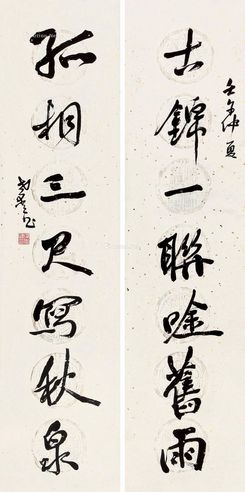 壬午仲夏
古錦一聯唫舊雨
孤桐三尺寫秋泉